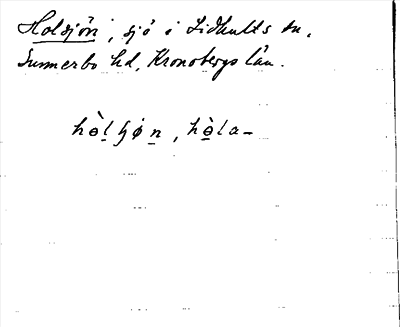 Holsjön, sjö i Lidhults sn,
Sunnerbo hd, Kronobergs län.
hò̤l̲ʃøn̲, hò̤la-